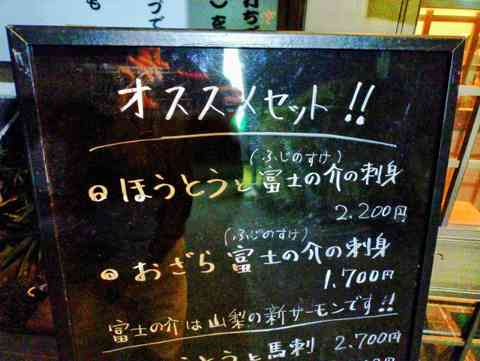 オススメセット!!
(ふじのすけ)
ほうとうと富士の介の刺身
2.200円
(ふじのすけ)
おざら 富士の介の刺身
1.700円
富士の介は山梨の新サーモンです!!
うとうと馬刺 2.700円